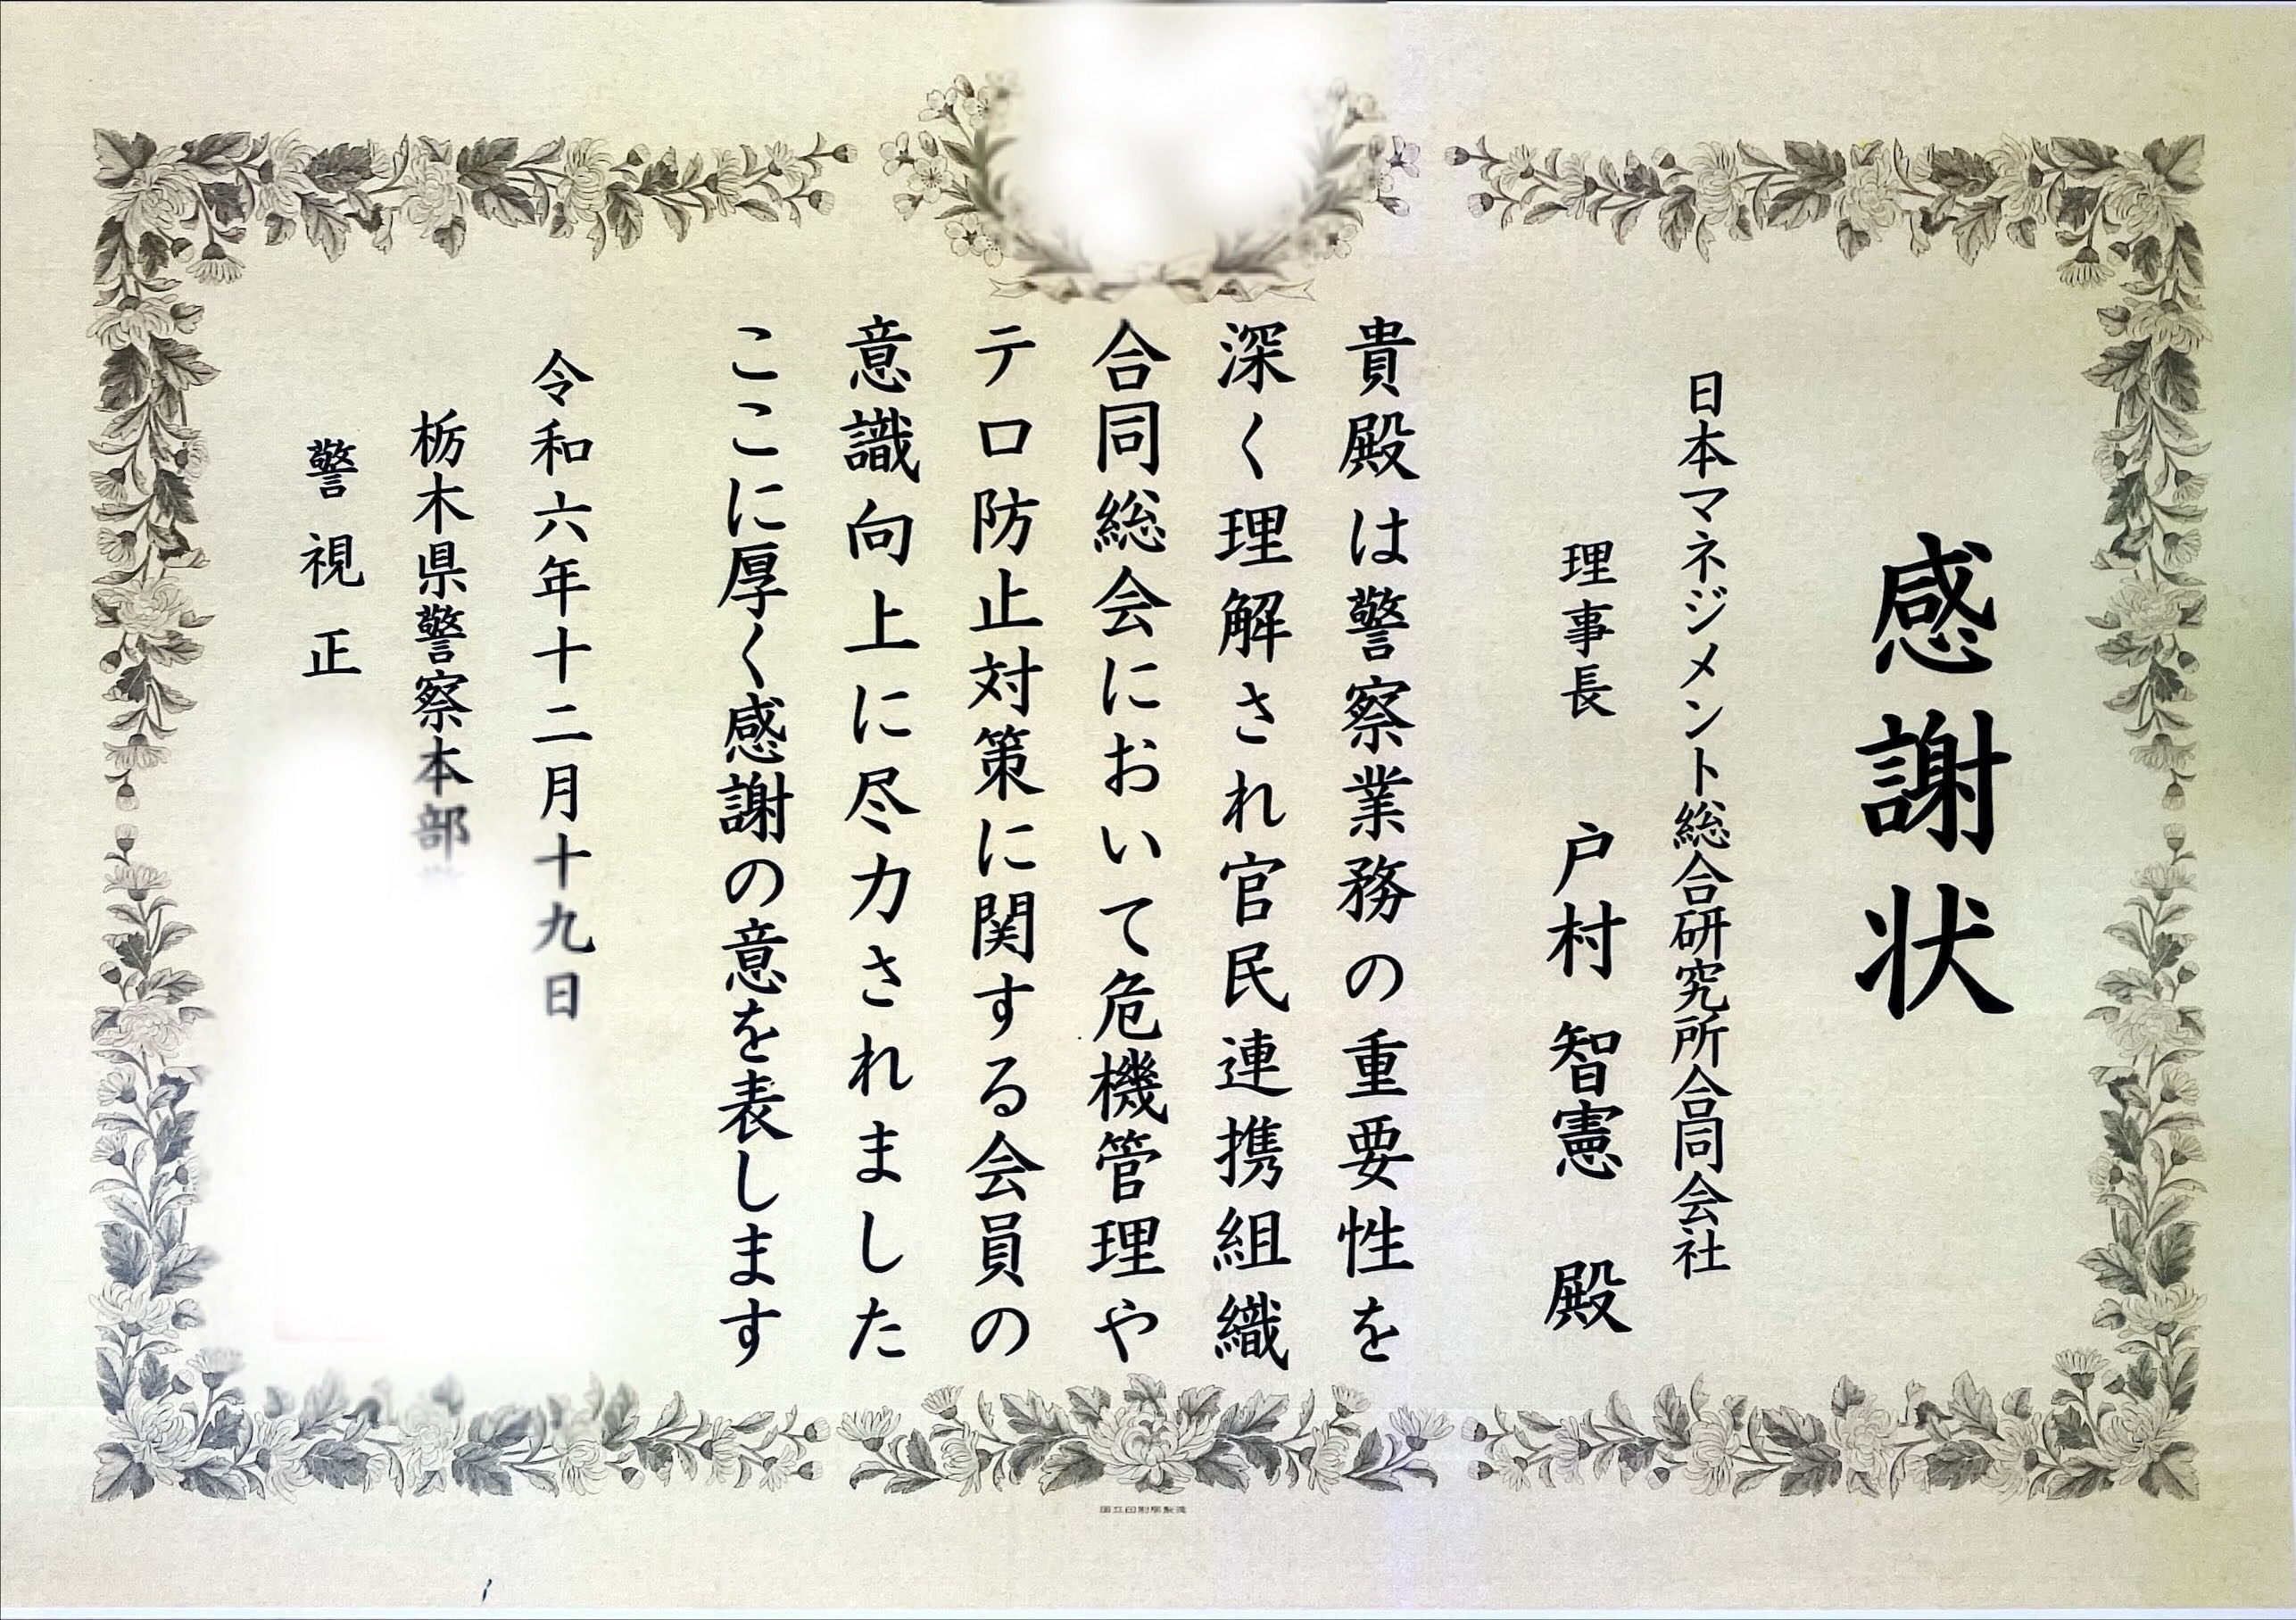 感謝状
日本マネジメント総合研究所合同会社
理事長 戸村 智憲 殿
貴殿は警察業務の重要性を
深く理解され官民連携組織
合同総会において危機管理や
テロ防止対策に関する会員の
意識向上に尽力されました
ここに厚く感謝の意を表します
令和六年十二月十九日
栃木県警察本部
警視正
国立印刷局製造